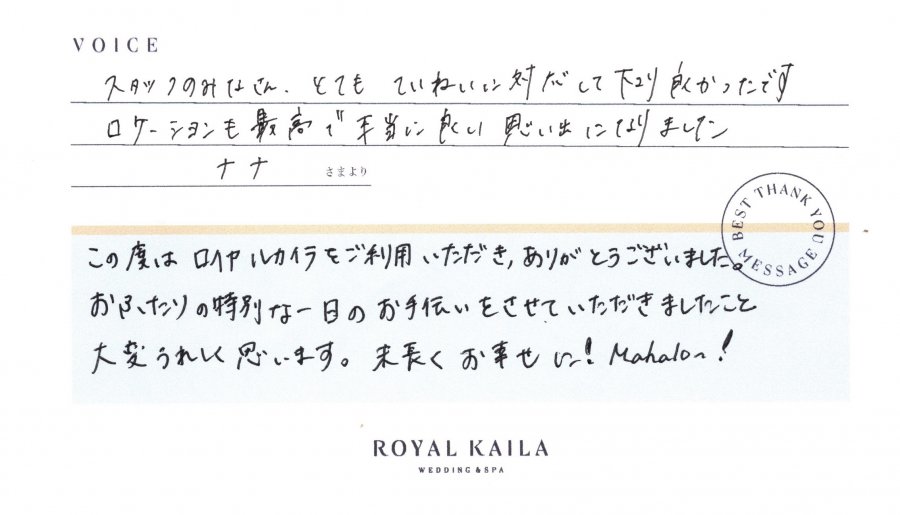 VOICE
スタッフのみなさん、とても ていねいに対応して下さり良かったです
ロケーションも最高で本当に良い思い出になりました
ナナ さまより
BEST THANK YOU MESSAGE
この度は ロイヤルカイラをご利用いただき、ありがとうございました。
おふたりの特別な一日のお手伝いをさせていただきましたこと
大変うれしく思います。末長くお幸せに!Mahalo~!
ROYAL KAILA
WEDDING & SPA